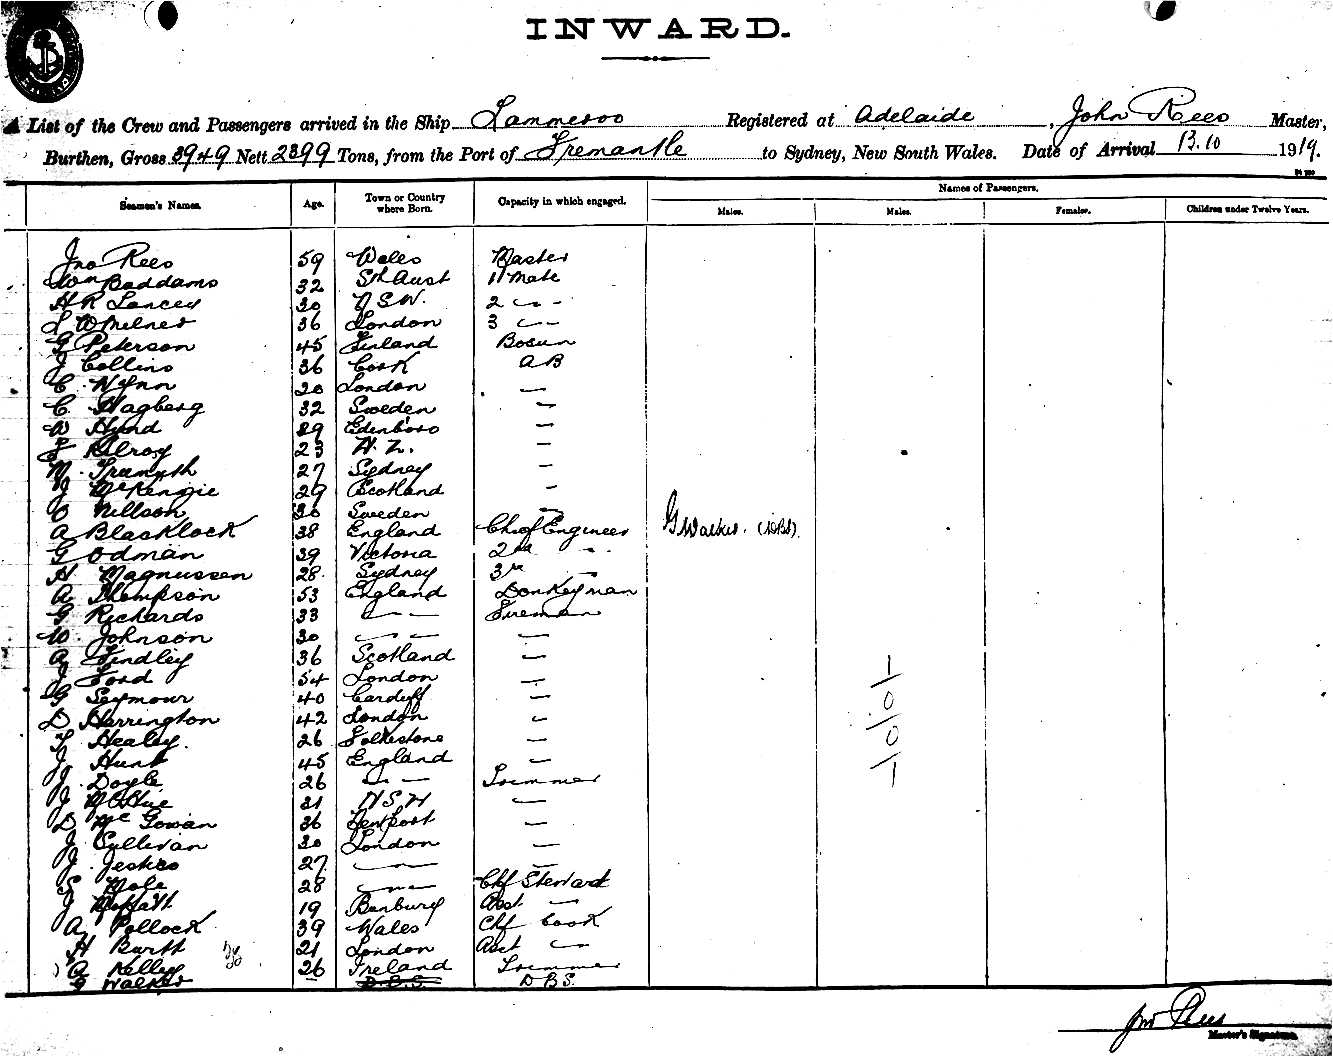 INWARD.
A List of the Crew and Passengers arrived in the Ship Registered at Adelaide, John Rees Master,
Burthen, Gross 3949 Nett 2399 Tons, from the Port of Fremantle to Sydney, New South Wales. Date of Arrival 13.10 1919.
Names of Passengers.
Seamen's Names. Age. Town or Country where Born. Capacity in which engaged. Males. Males. Females. Children under Twelve Years.
Jno Rees 59 Wales Master
Wm Baddams 32 Sth Aust 1st Mate
H R Lancey 30 N S W. 2 — -
L W Milnes 36 London 3 —
G Peterson 45 Finland Bosun
J Collins 36 Cork AB
C. Wynn 20 London —
C. Hagberg 32 Sweden —
W Hynd 29 Edenboro —
Kilroy 23 N. Z. —
M. 27 Sydney —
J McKenzie 29 Scotland -
O Nillson 36 Sweden —
A Blacklock 38 England Chief Engineer G Walker. (DBS).
G Odman 39 Victoria 2nd -
H Magnussen 28. Sydney 3rd —
A Thompson 53 England Donkeyman
G Richards 33 — — Fireman
W. Johnson 30 — — —
A Findley 36 Scotland —
J Ford 54 London —
G Seymour 40 Cardiff —
D Harrington 42 London -
T Healey. 26 Folkestone —
J Hunt 45 England —
J. Doyle 26 — — Trimmer
J 21 N S W —
D McGowan 36 Newport —
J Sullivan 30 London —
J 27 — — —
S Mole 28 — — Chf Steward
J Moffatt 19 Banbury Asst. —
A. Pollock 39 Wales Chf Cook
H Barth 21 London Asst —
A Kelley 26 Ireland Trimmer
G Walker — D.B.S. D B S.
Jno Rees
Master's Signature.